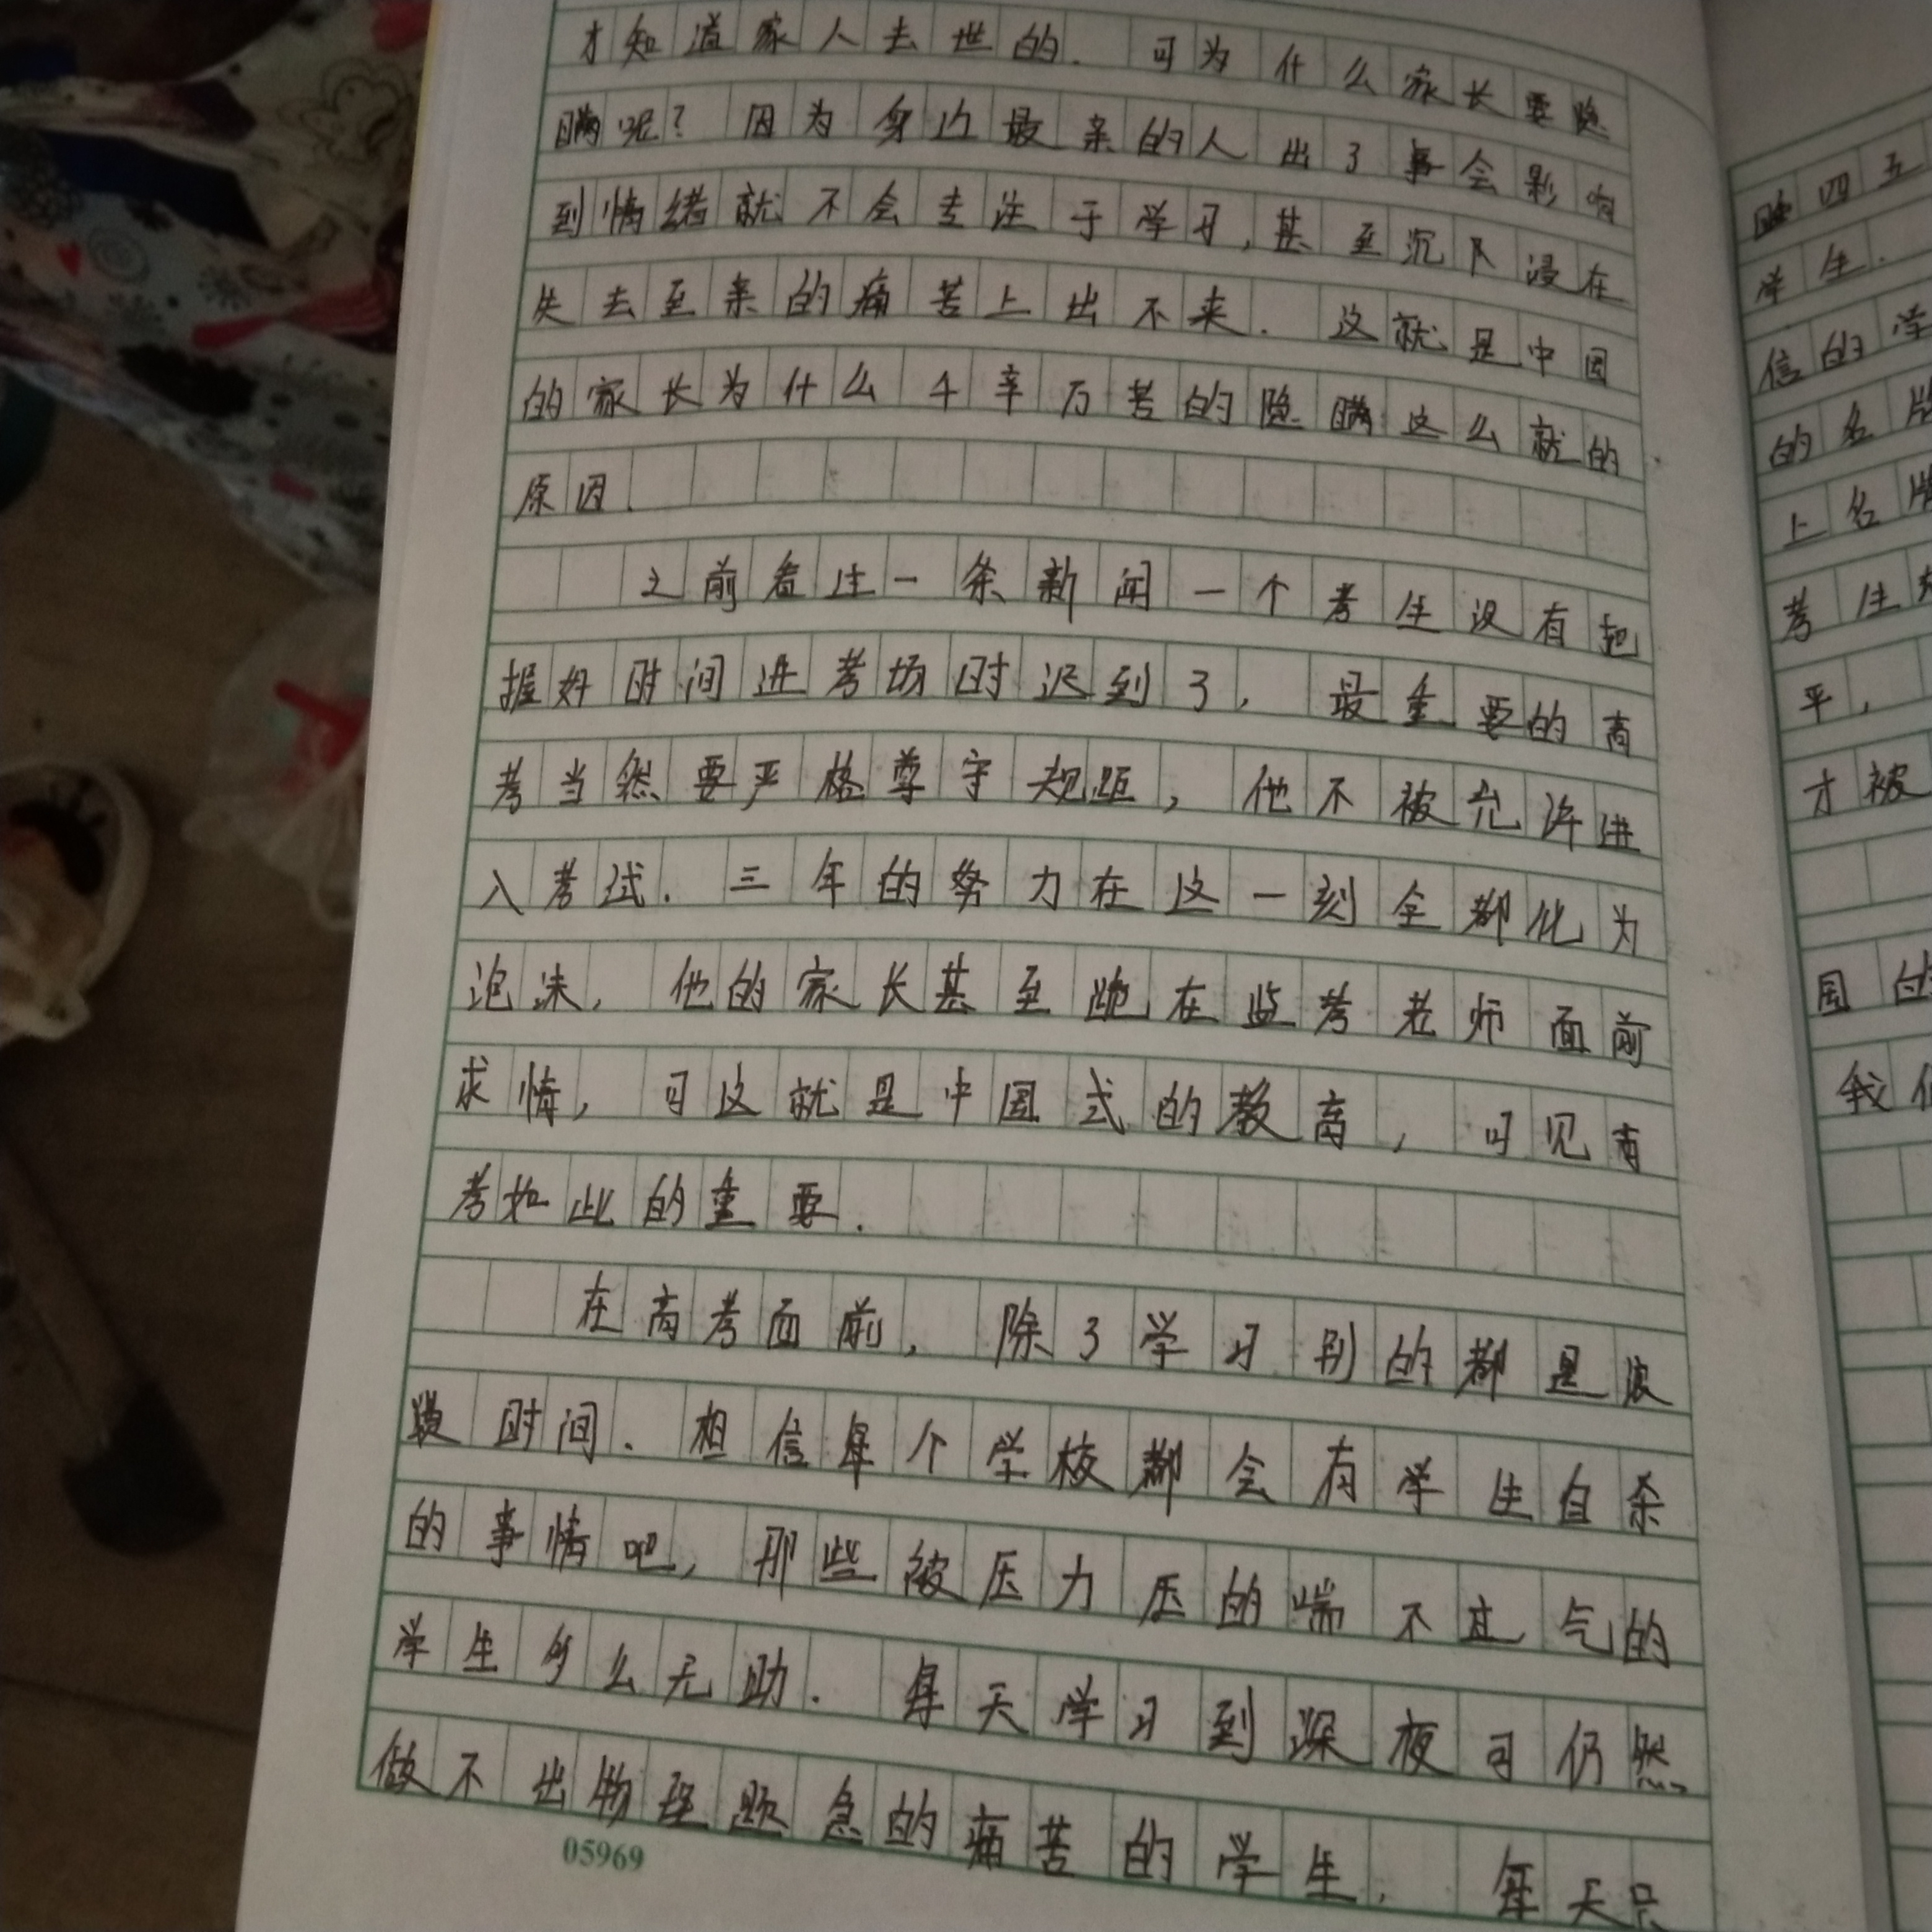 才知道家人去世的. 可为什么家长要隐
瞒呢? 因为身边最亲的人出了事会影响
到情绪就不会专注于学习,甚至沉下浸在
失去至亲的痛苦上出不来. 这就是中国
的家长为什么千辛万苦的隐瞒这么就的
原因.
之前看过一条新闻一个考生没有把
握好时间进考场时迟到了, 最重要的高
考当然要严格尊守规距, 他不被允许进
入考试. 三年的努力在这一刻全都化为
泡沫, 他的家长甚至跪在监考老师面前
求情, 可这就是中国式的教高, 可见高
考如此的重要.
在高考面前, 除了学习别的都是浪
费时间. 相信每个学校都会有学生自杀
的事情吧, 那些被压力压的喘不过气的
学生多么无助. 每天学习到深夜可仍然
做不出物理题急的痛苦的学生, 每天只
05969
四五
学生.
信的学
的名牌
上名牌
考生
平,
才被
国的
我们